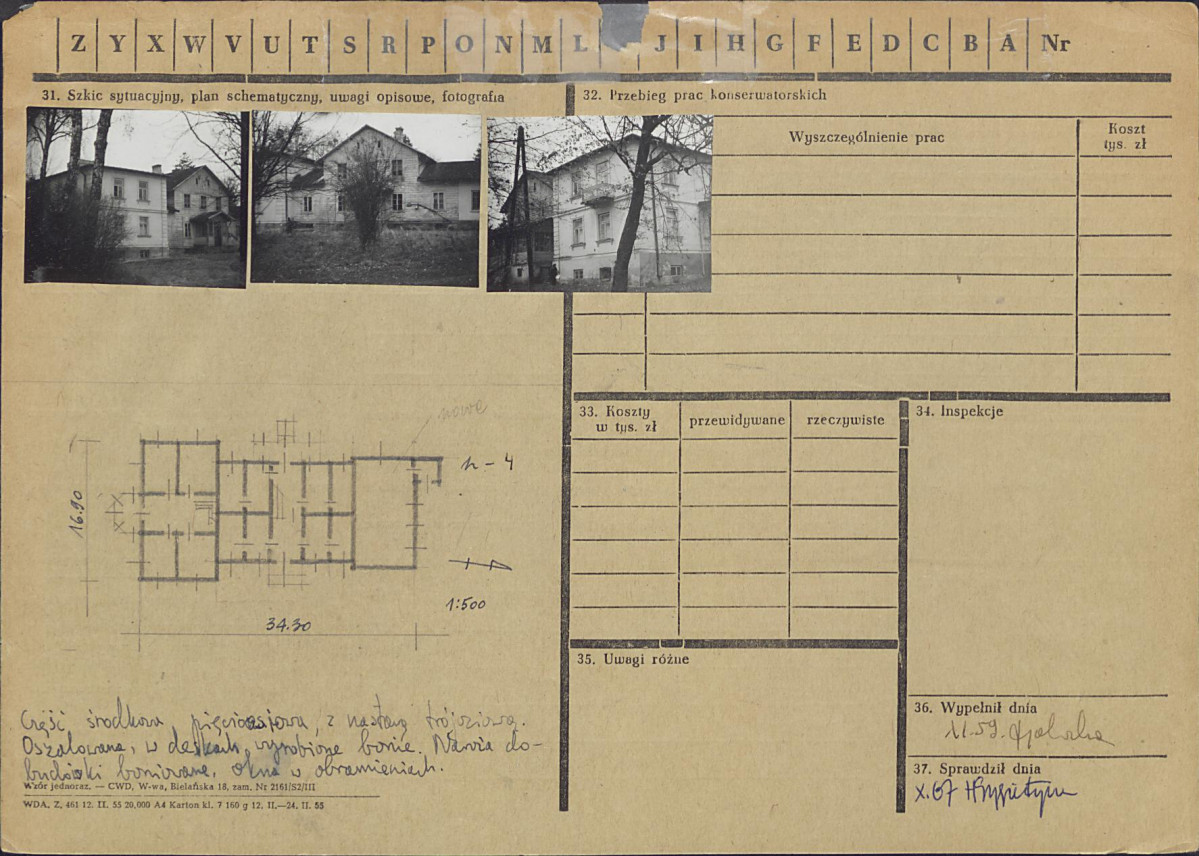 Z Y X W V U T S R P O N M L J I H G F E D C B A Nr
31. Szkic sytuacyjny, plan schematyczny, uwagi opisowe, fotografia
32. Przebieg prac konserwatorskich
Wyszczególnienie prac
Koszt
tys. zł
nowe
h - 4
16.90
1:500
34.30
33. Koszty
w tys. zł
przewidywane
rzeczywiste
34. Inspekcje
35. Uwagi różne
36. Wypełnił dnia
11.59.
37. Sprawdził dnia
X.67
Część środkowa pięcioosiowa, z nastawą trójosiową.
Oszalowana, w deskach wyrobione bonie. Naroża do-
budówki boniowane, okna w obramieniach.
Wzór jednoraz. — CWD, W-wa, Bielańska 18, zam. Nr 2161/S2/III
WDA. Z. 461 12. II. 55 20,000 A4 Karton kl. 7 160 g 12. II.—24. II. 55